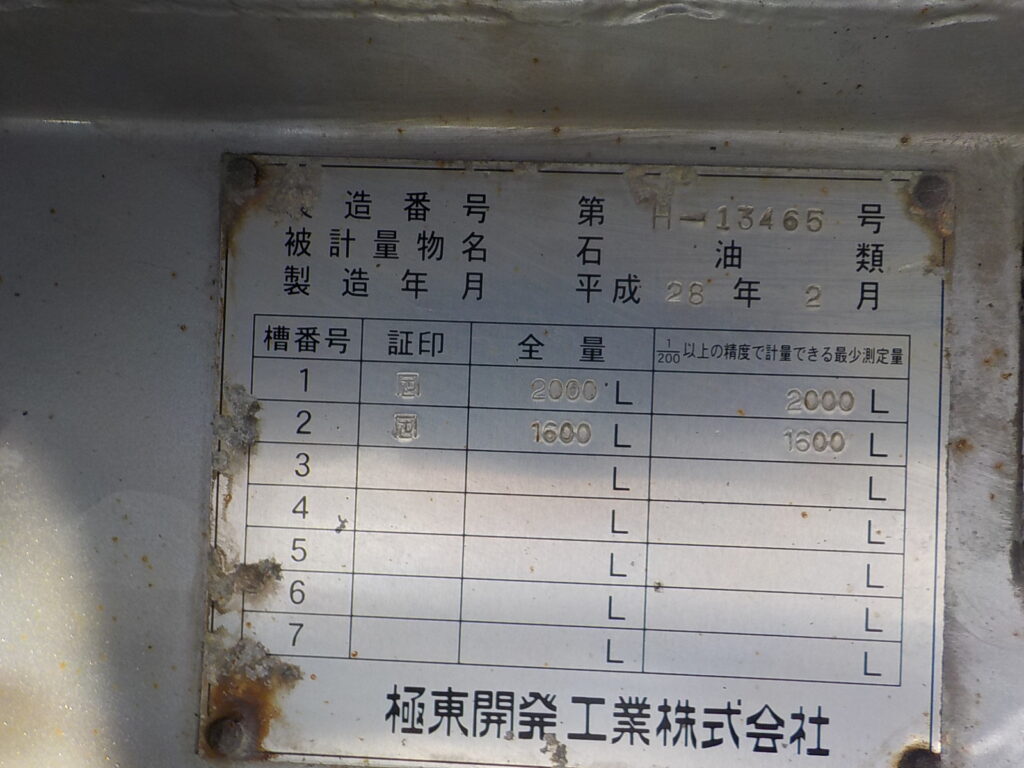 造番号 第 H-13465 号
被計量物名 石油類
製造年月 平成 28 年 2 月
槽番号 証印 全量 1/200以上の精度で計量できる最少測定量
1 2000 L 2000 L
2 1600 L 1600 L
3 L L
4 L L
5 L L
6 L L
7 L L
極東開発工業株式会社